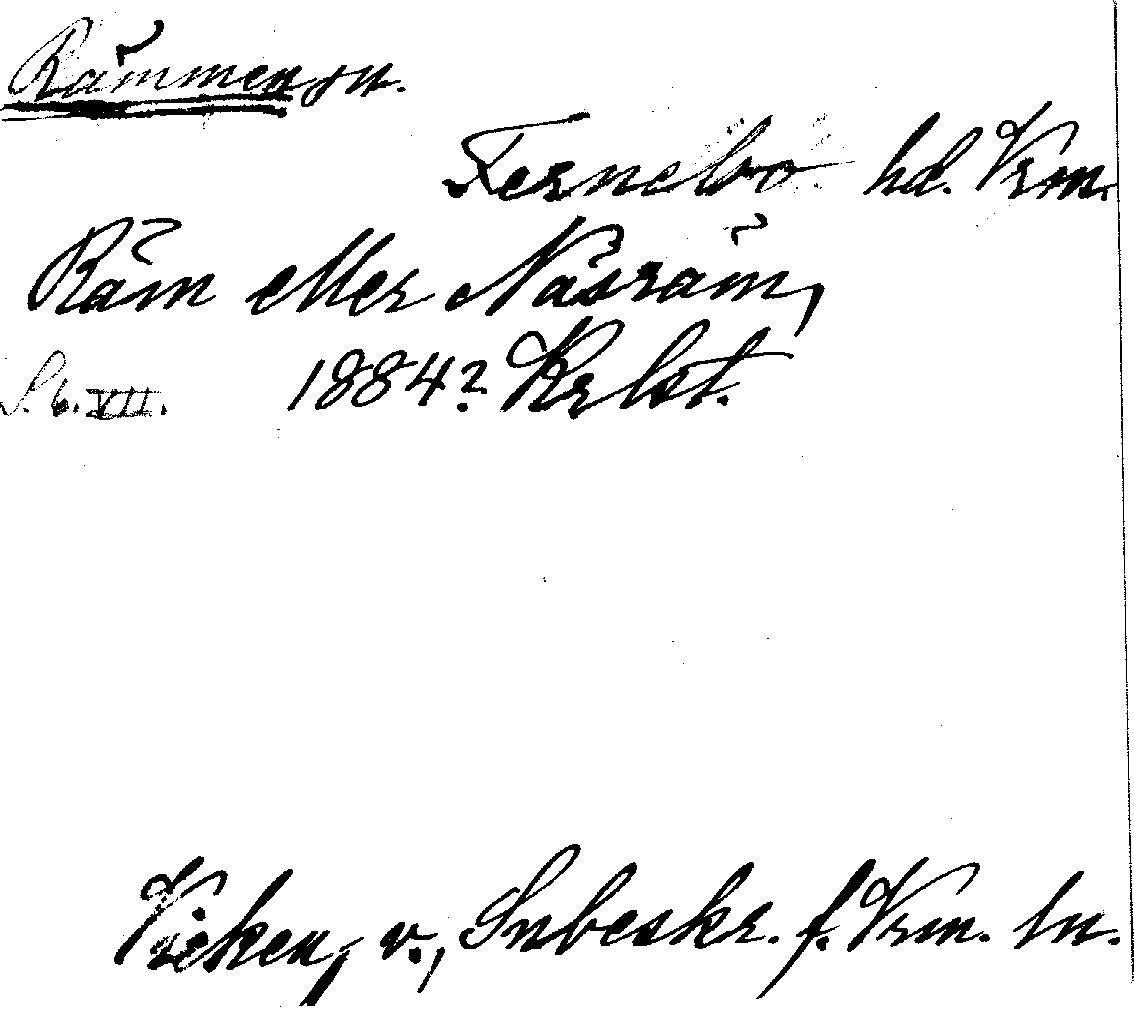 Rämmen sn.
Fernebo hd. Vrm.
Räm eller Näsräm,
S. 6. VII. 1884? Krlst.
Vieken, v., Snbeskr. f. Vrm. ln.